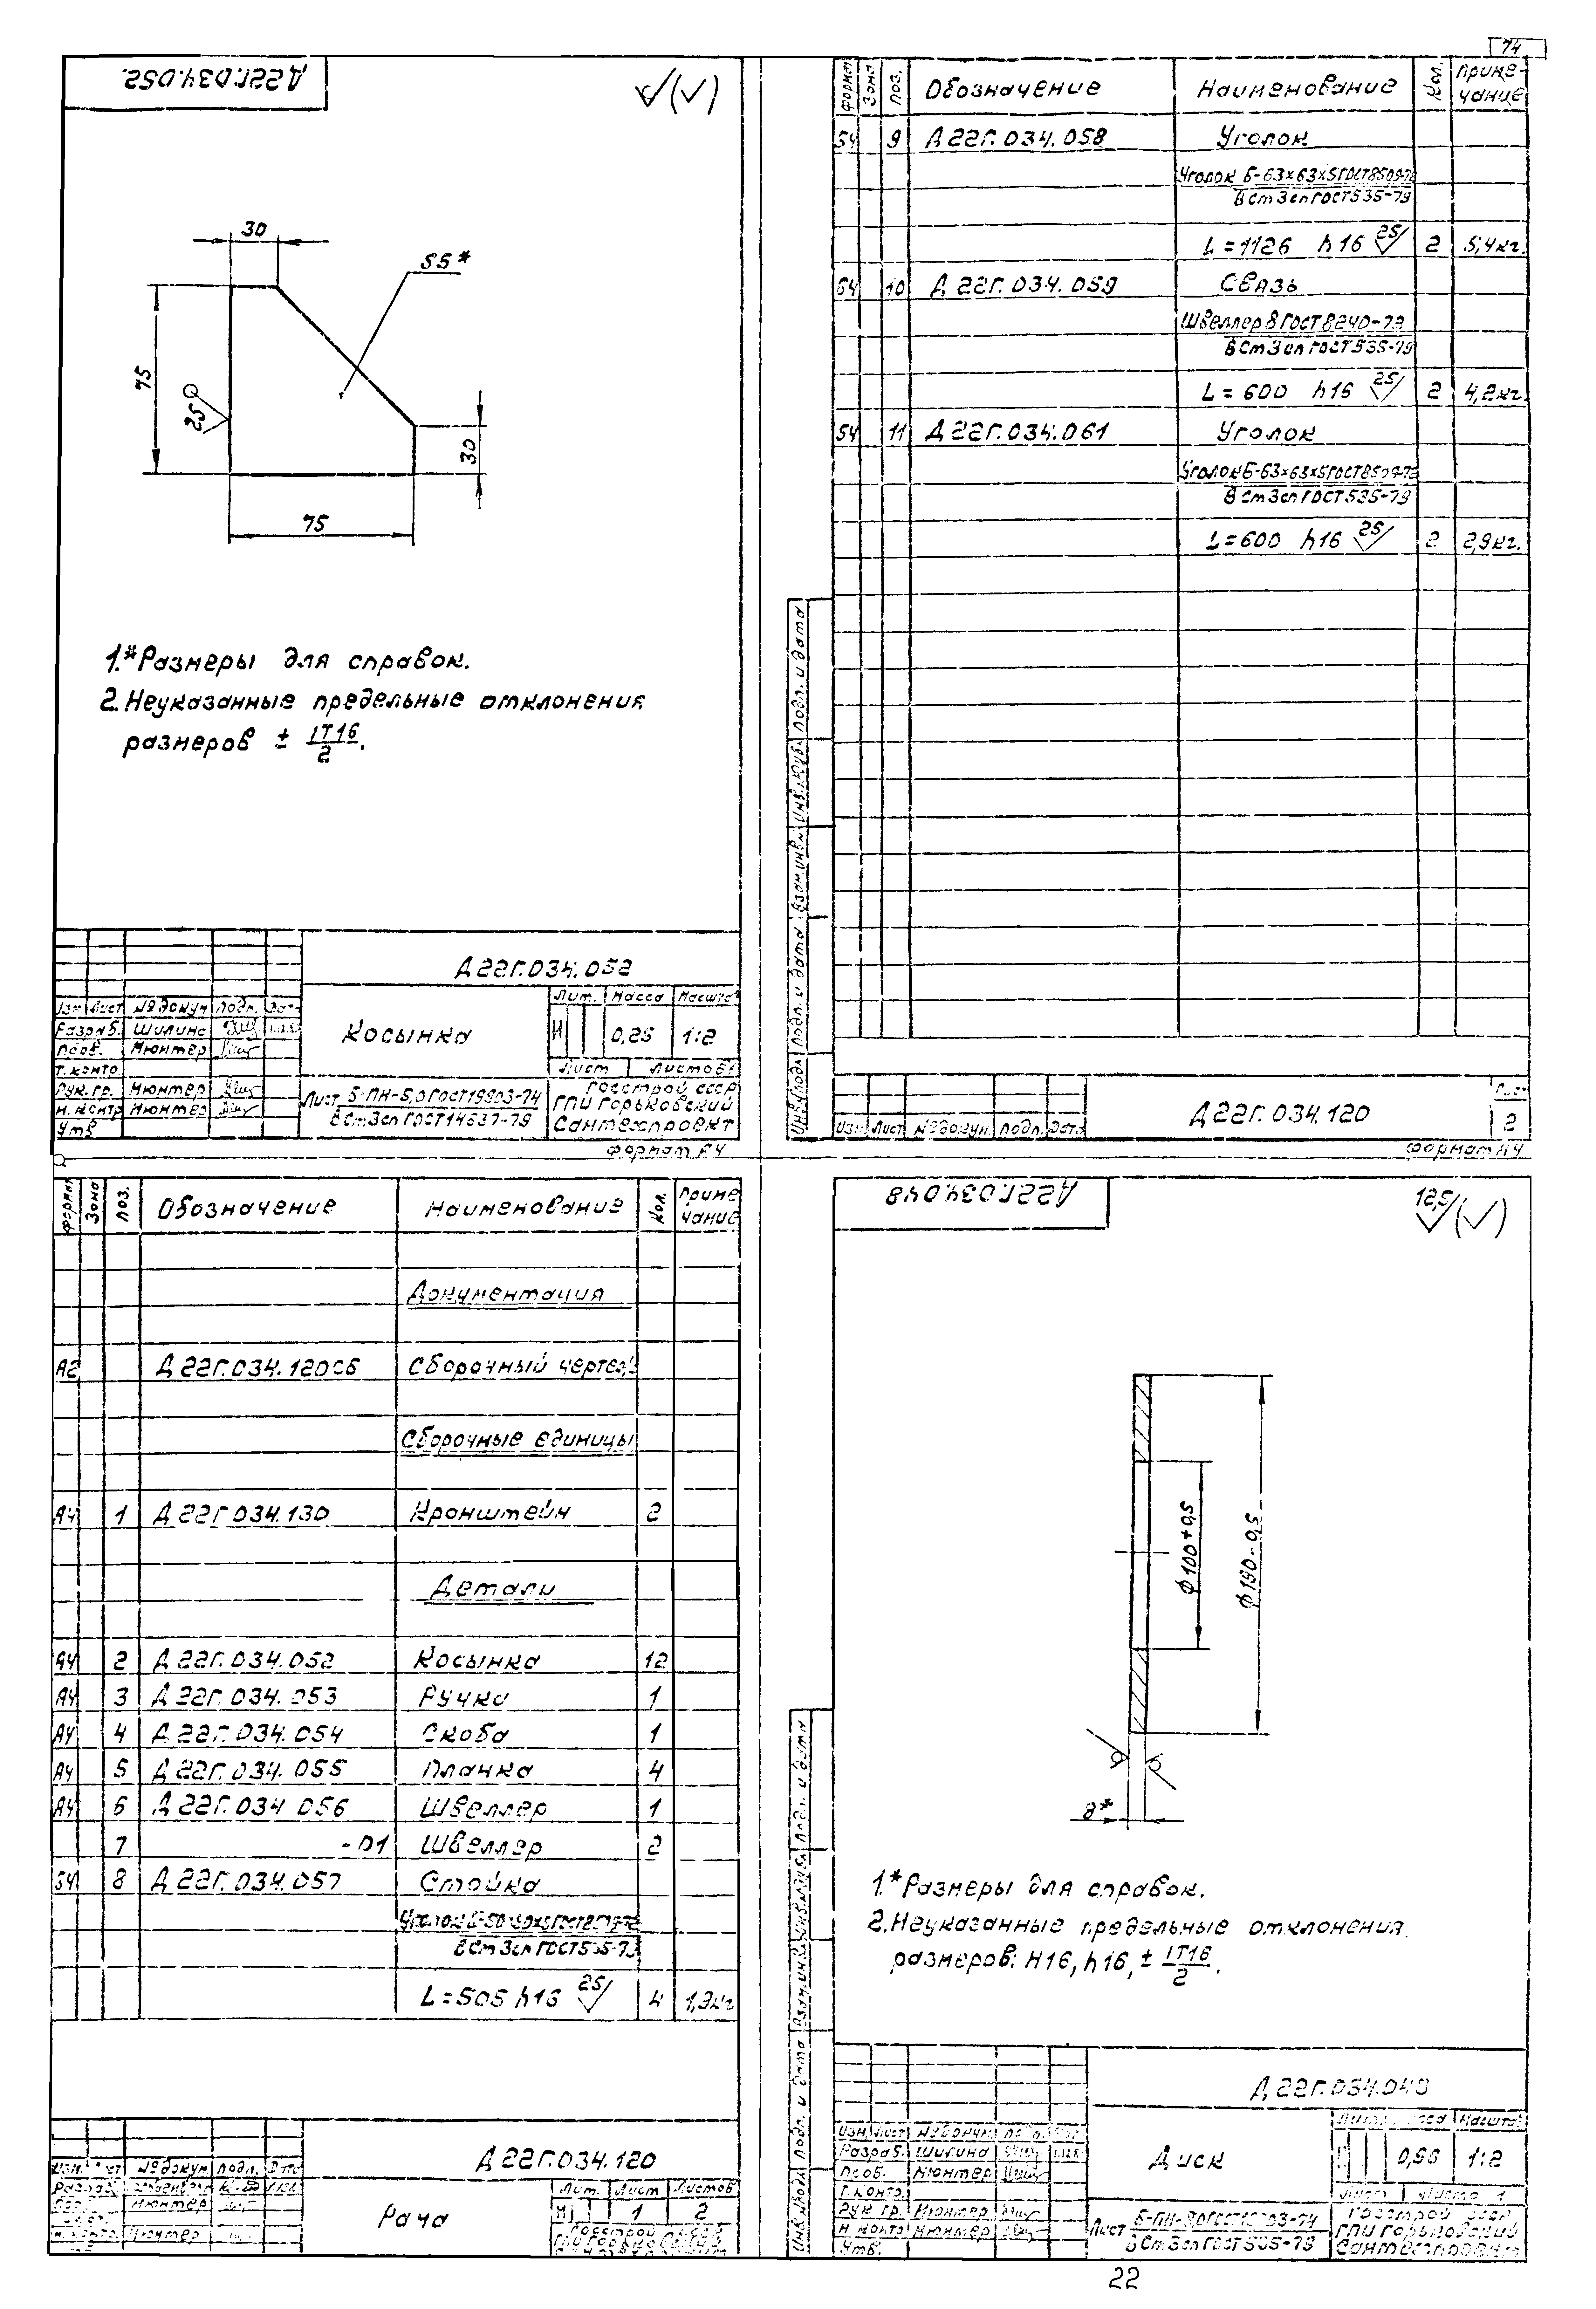 74
Д22Г.034.052
30
S5*
75
25
30
75
1.*Размеры для справок.
2. Неуказанные предельные отклонения
размеров ± IT16/2.
Д22Г.034.052
Лит. Масса Масштаб
Косынка
И 0,25 1:2
Лист Листов 1
Изм Лист № докум Подп. Дата
Разраб. Шилина
Пров. Мюнтер
Т. контр
Рук. гр. Мюнтер
Н. контр Мюнтер
Утв
Лист Б-ПН-5,0 ГОСТ 19903-74
ВСт3сп ГОСТ 14637-79
Госстрой СССР
ГПИ Горьковский
Сантехпроект
Формат А4
Формат Зона Поз. Обозначение Наименование Кол. Приме-
чание
Б4 9 Д22Г.034.058 Уголок
Уголок Б-63×63×5 ГОСТ 8509-72
ВСт3сп ГОСТ 535-79
L=1126 h16 25 2 5,4кг.
Б4 10 Д22Г.034.059 Связь
Швеллер 8 ГОСТ 8240-72
ВСт3сп ГОСТ 535-79
L=600 h16 25 2 4,2кг.
Б4 11 Д22Г.034.061 Уголок
Уголок Б-63×63×5 ГОСТ 8509-72
ВСт3сп ГОСТ 535-79
L=600 h16 25 2 2,9кг.
Инв.№ подл. Подп. и дата Взам.инв.№ Инв.№ дубл. Подп. и дата
Изм Лист № докум Подп. Дата
Д22Г.034.120
Лист
2
Формат А4
Формат Зона Поз. Обозначение Наименование Кол. Приме
чание
Документация
А2 Д22Г.034.120СБ Сборочный чертеж
Сборочные единицы
А4 1 Д22Г.034.130 Кронштейн 2
Детали
А4 2 Д22Г.034.052 Косынка 12
А4 3 Д22Г.034.053 Ручка 1
А4 4 Д22Г.034.054 Скоба 1
А4 5 Д22Г.034.055 Планка 4
А4 6 Д22Г.034.056 Швеллер 1
7 -01 Швеллер 2
Б4 8 Д22Г.034.057 Стойка
ВСт3сп ГОСТ 535-79
L=505 h16 25 4 1,9кг
Д22Г.034.120
Изм. Лист № докум Подп. Дата
Мюнтер
Н. контр. Мюнтер
Рама
Лит. Лист Листов
И 1 2
Госстрой СССР
ГПИ Горьковский
Д22Г.034.048
12,5
ф100+0,5
ф190-0,5
8*
1.*Размеры для справок.
2. Неуказанные предельные отклонения
размеров: H16, h16, ± IT16/2.
Инв.№ подл. Подп. и дата Взам.инв.№ Инв.№ дубл. Подп. и дата
Д22Г.034.048
Масштаб
Диск
1:2
Изм Лист № докум Подп.
Разраб. Шилина
Пров. Мюнтер
Т. контр.
Рук. гр. Мюнтер
Н. контр Мюнтер
Утв.
Лист Листов 1
Лист
Госстрой СССР
ГПИ Горьковский
Сантехпроект
22